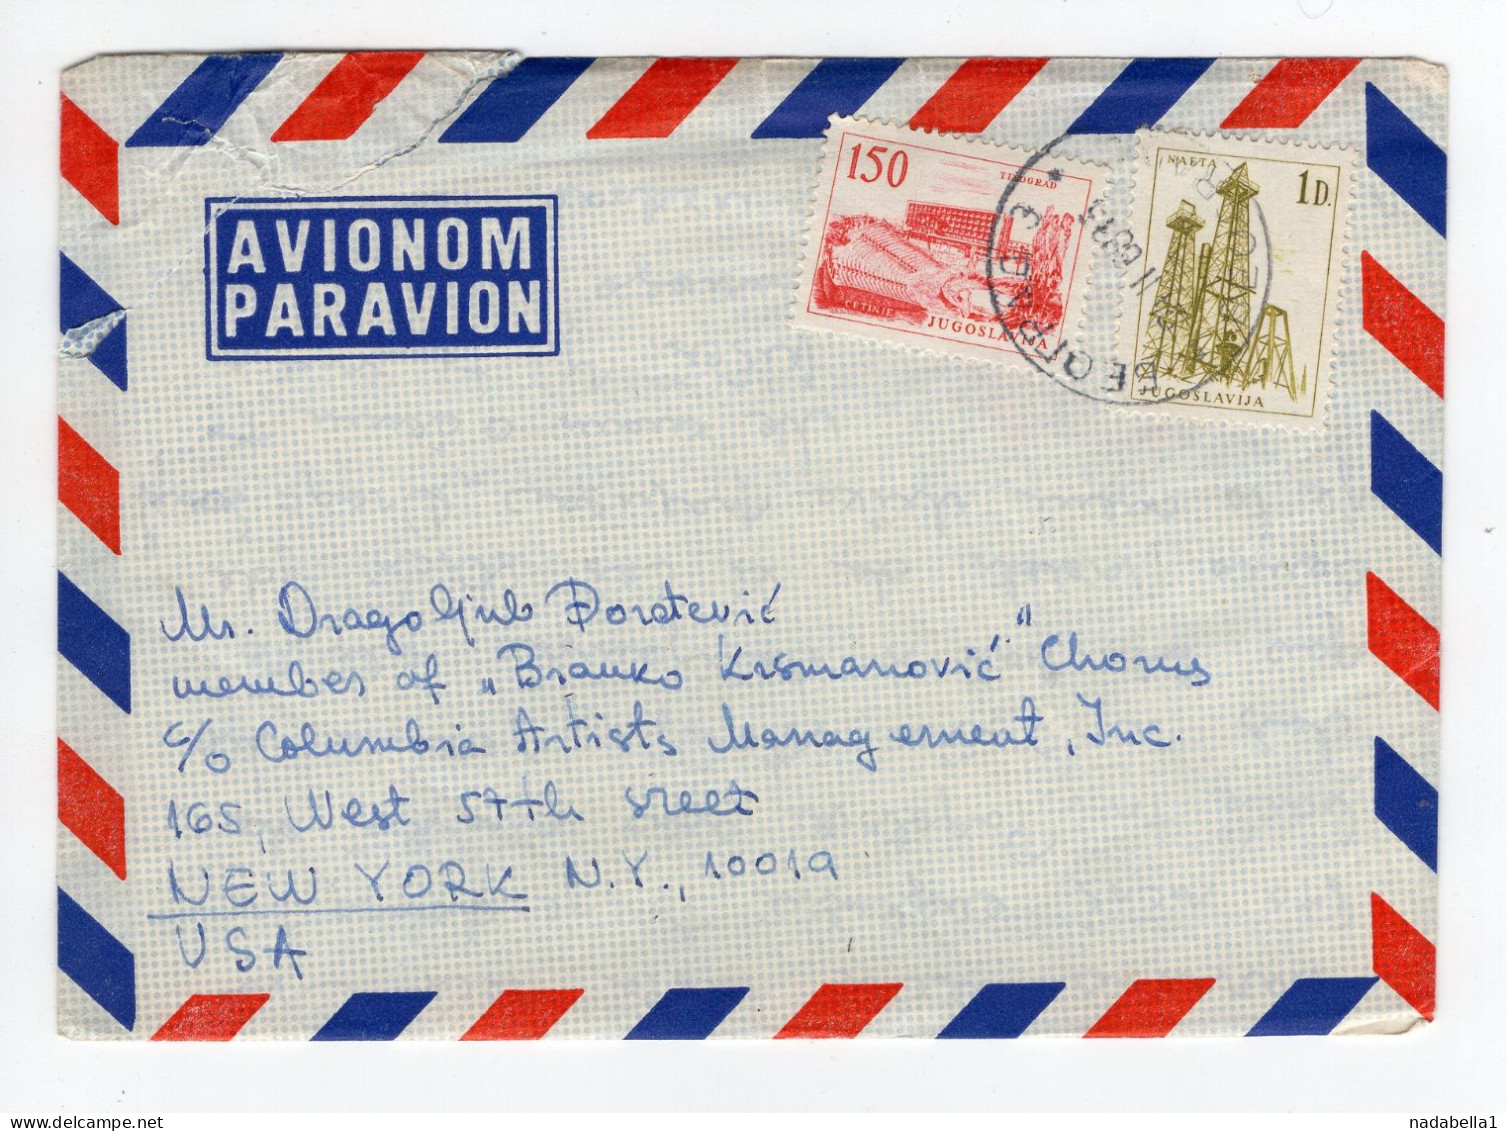 AVIONOM
PARAVION
150
TITOGRAD
CETINJE
JUGOSLAVIJA
NAFTA
1 D.
JUGOSLAVIJA
Mr. Dragoljub Đorđević
member of „Branko Krsmanović" Chorus
c/o Columbia Artists Management, Inc.
165, West 57th sreet
NEW YORK N.Y., 10019
USA
nadabella1